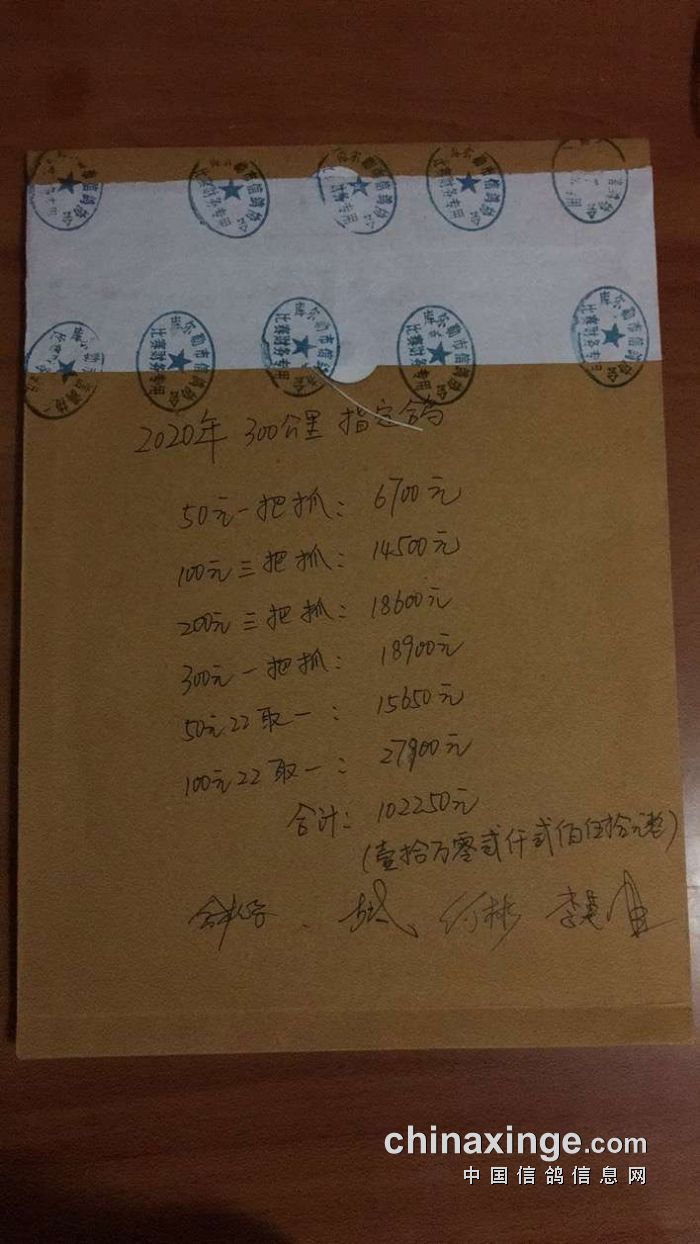 尔勒市信鸽协会
比赛财务专用
2020年 300公里 指定鸽
50元一把抓: 6700元
100元三把抓: 14500元
200元三把抓: 18600元
300元一把抓: 18900元
50元22取一: 15650元
100元22取一: 27900元
合计: 102250元
(壹拾万零贰仟贰佰伍拾元整)
何彬
chinaxinge.com
中国信鸽信息网